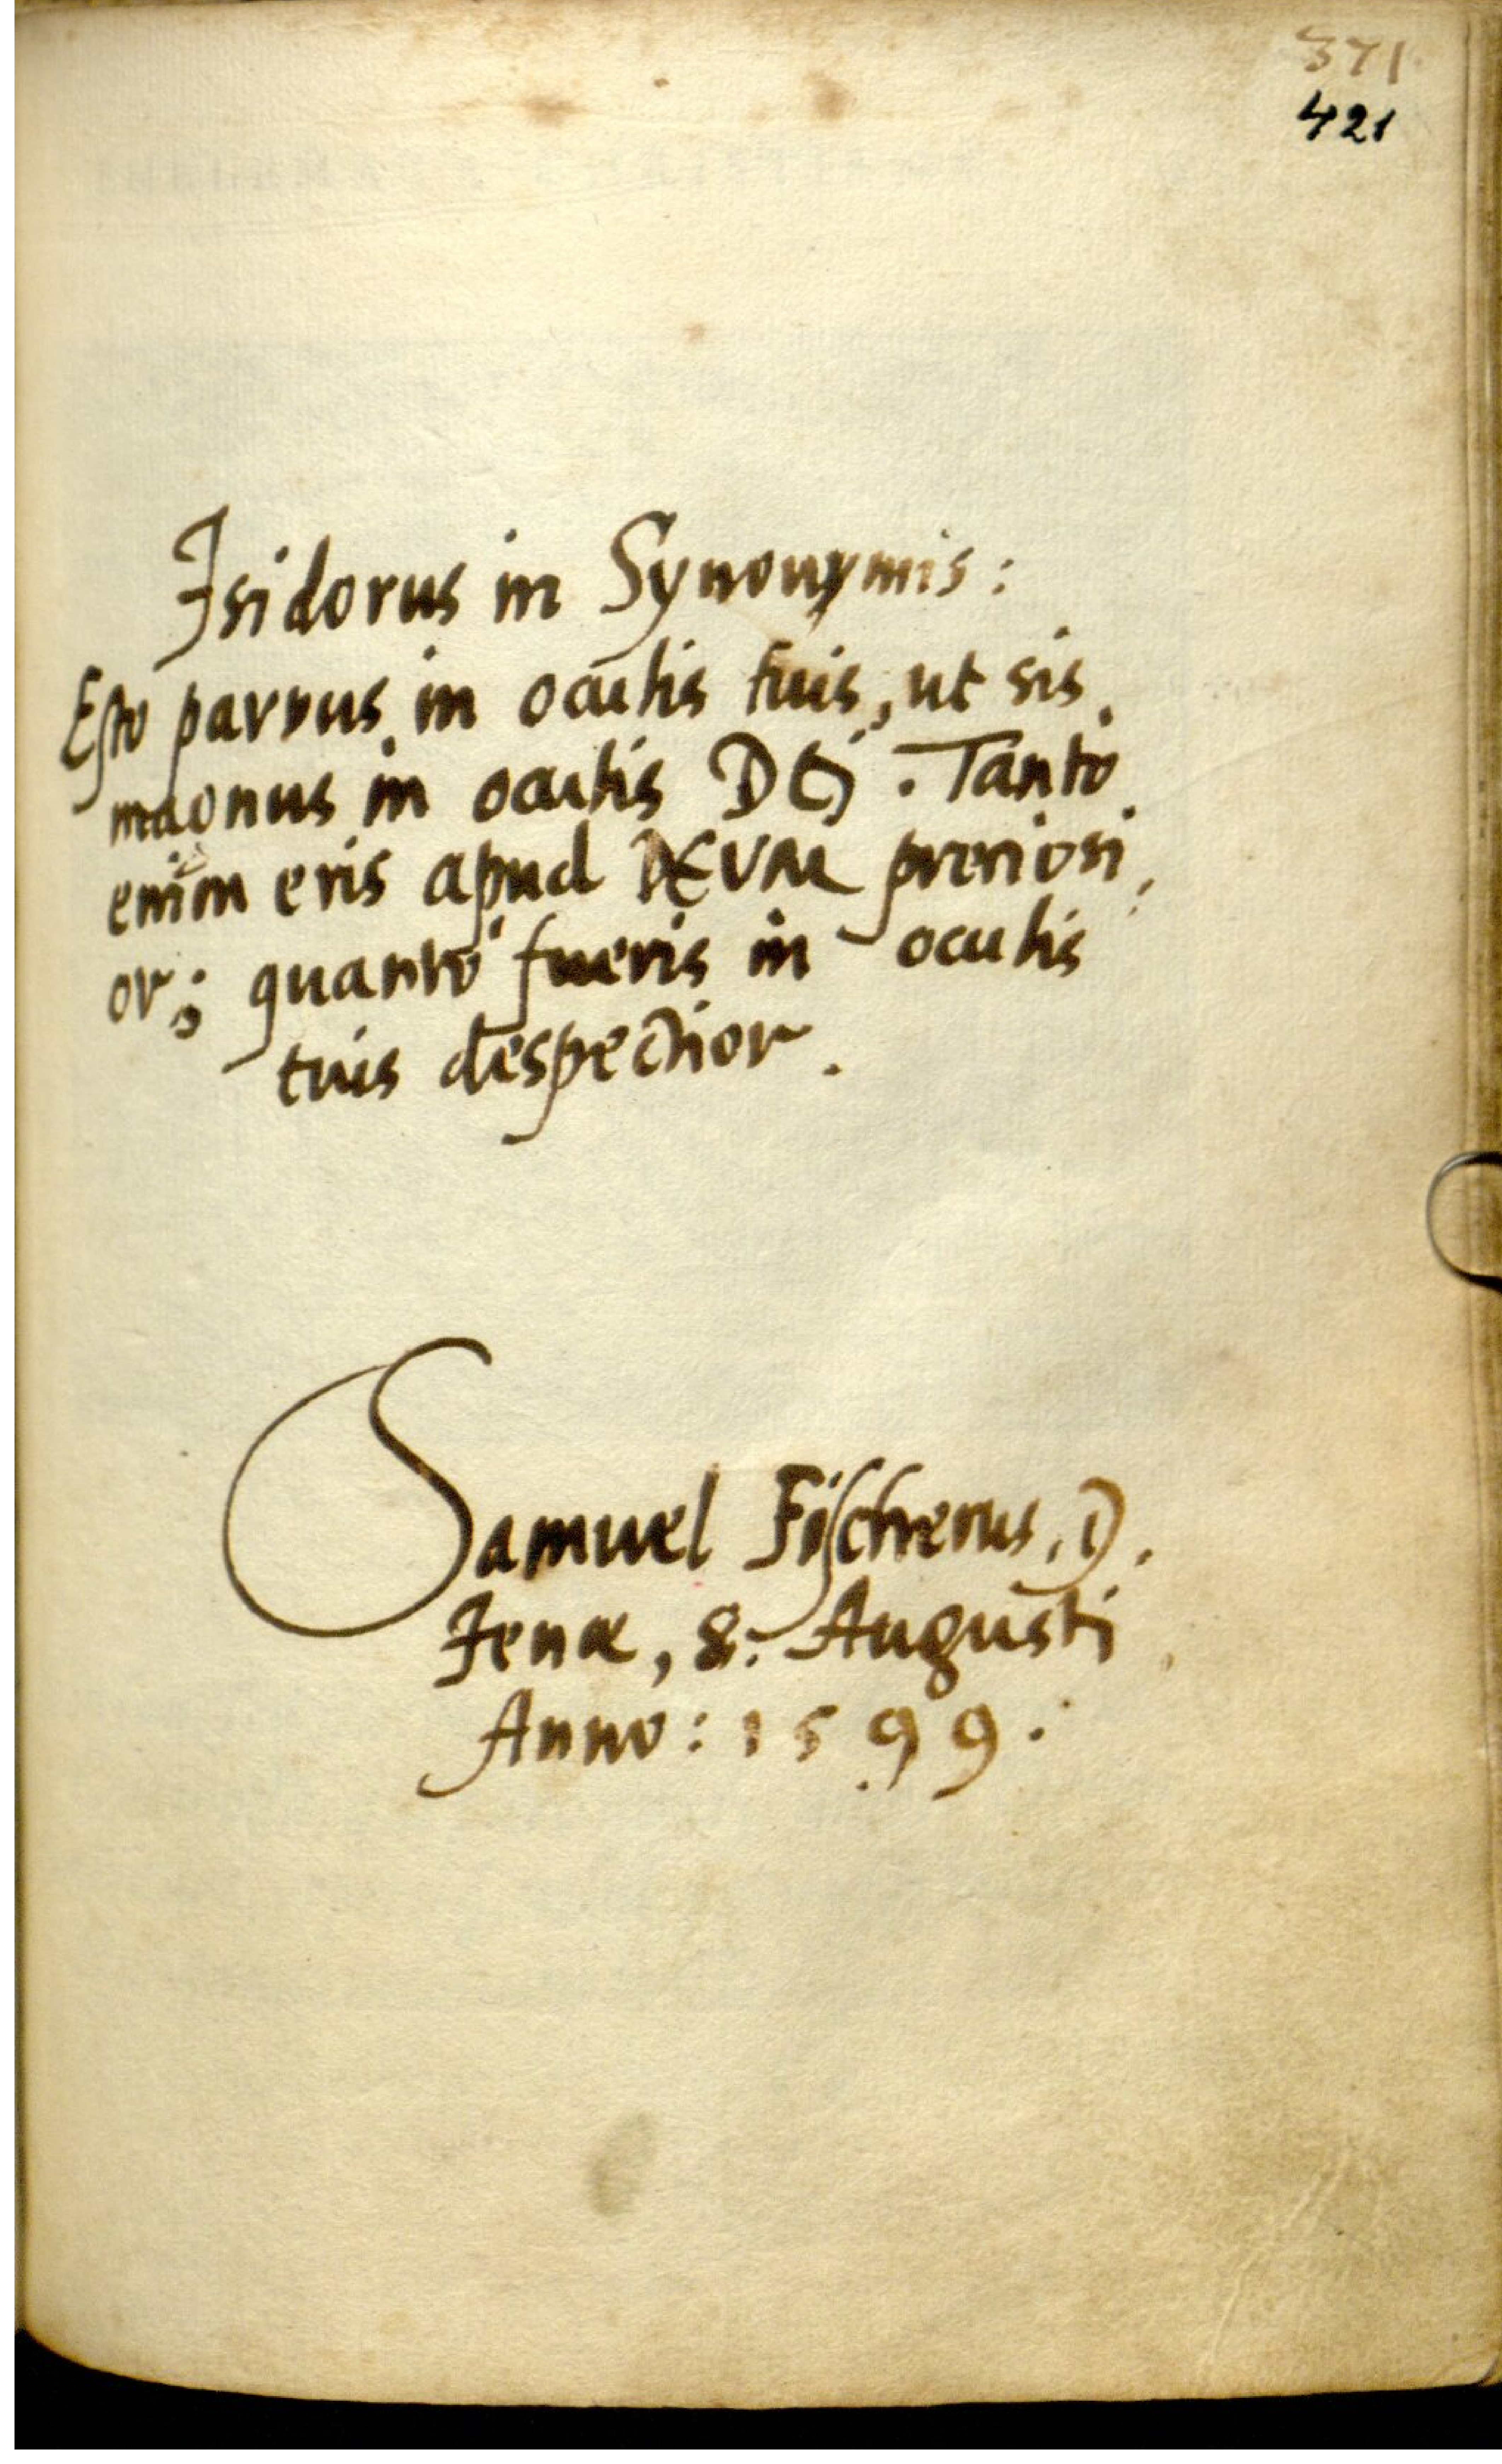 371
421
Isidorus in Synonymis:
Esto parvus in oculis tuis, ut sis
magnus in oculis DEJ. Tanto
enim eris apud DEVM preciosi,
or; quanto fueris in oculis
tuis despectior.
Samuel Fischerus, D.
Jenæ, 8. Augusti
Anno: 1599.